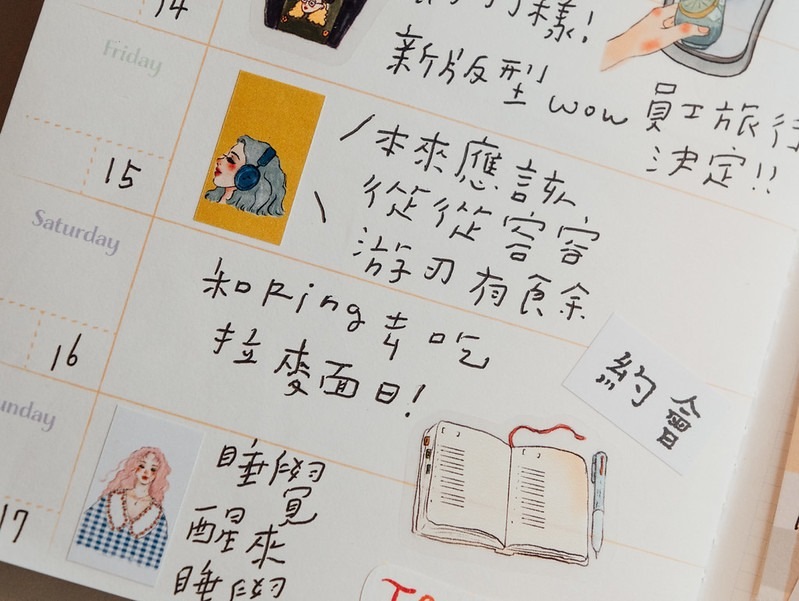 14
樣!
新版型 wow
員工旅行
決定!!
Friday
15
本來應該
從從容容
游刃有餘
Saturday
16
和King去吃
拉麥面日!
約會
unday
17
睡覺
醒來
睡